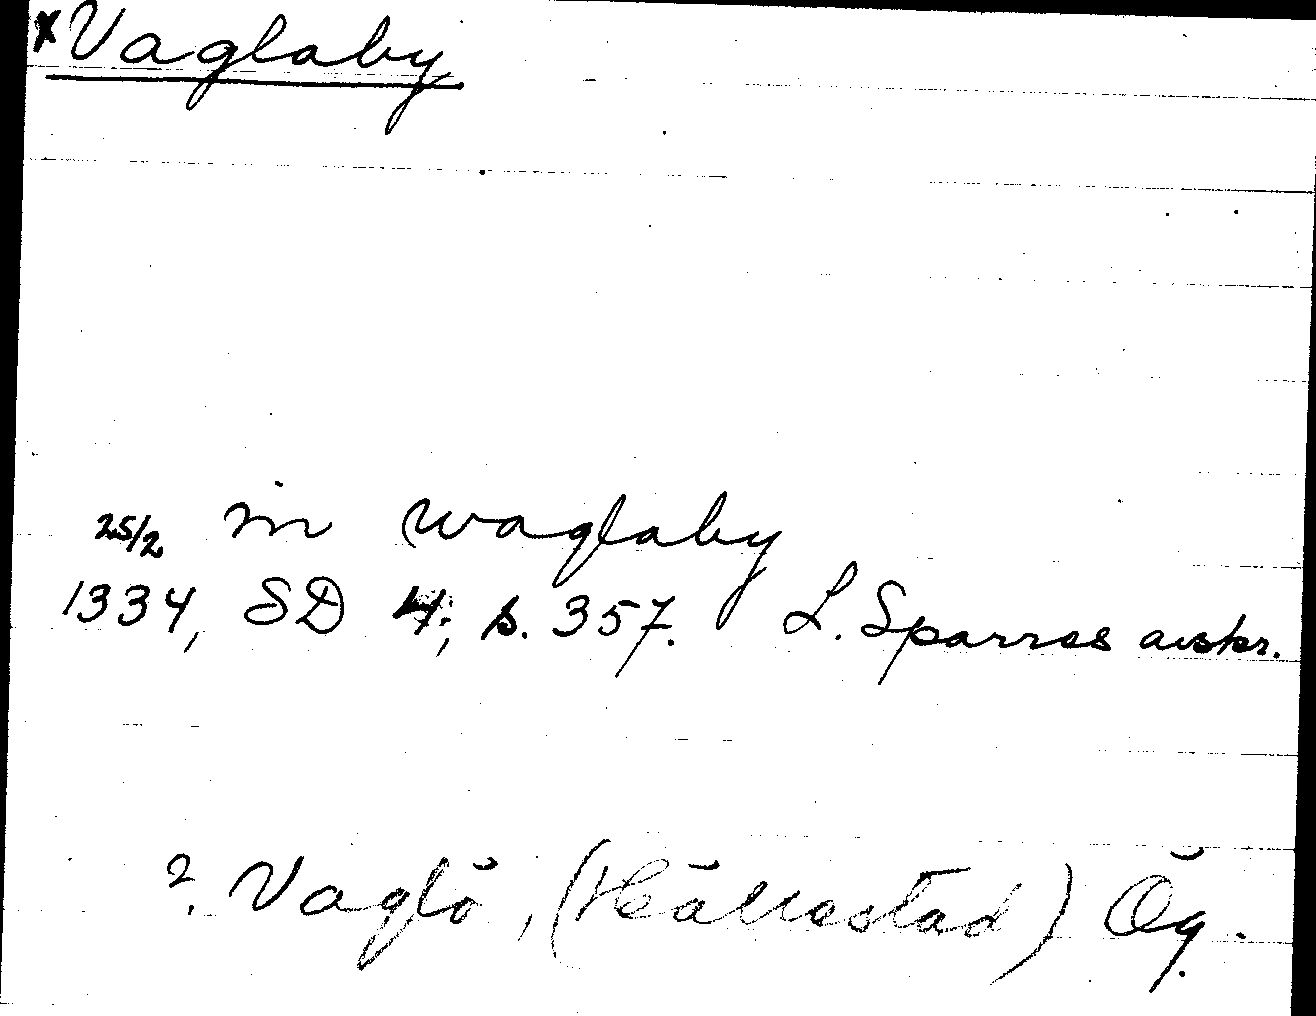 xVaglaby
25/2 in waglaby
1334, SD 4; s. 357. L. Sparres avskr.
? Vaglö, (Hällestad) Ög.